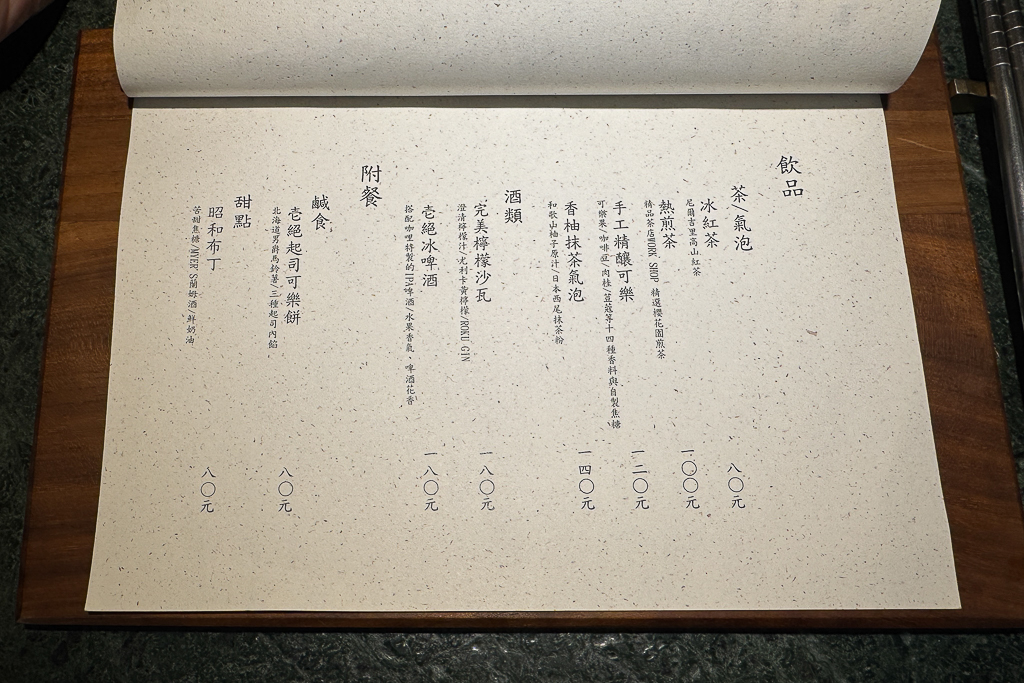 飲品
茶/氣泡
冰紅茶
尼爾吉里高山紅茶
八〇元
熱煎茶
精品茶店WORK SHOP 精選櫻花園煎茶
一〇〇元
手工精釀可樂
可樂果/咖啡豆/肉桂/荳蔻等十四種香料與自製焦糖
一二〇元
香柚抹茶氣泡
和歌山柚子原汁/日本西尾抹茶粉
一四〇元
酒類
完美檸檬沙瓦
澄清檸檬汁/尤利卡黃檸檬/ROKU GIN
一八〇元
壱絕冰啤酒
搭配咖哩特製的IPA啤酒/水果香氣、啤酒花香
一八〇元
附餐
鹹食
壱絕起司可樂餅
北海道男爵馬鈴薯/三種起司內餡
八〇元
甜點
昭和布丁
苦甜焦糖/MYER'S蘭姆酒/鮮奶油
八〇元